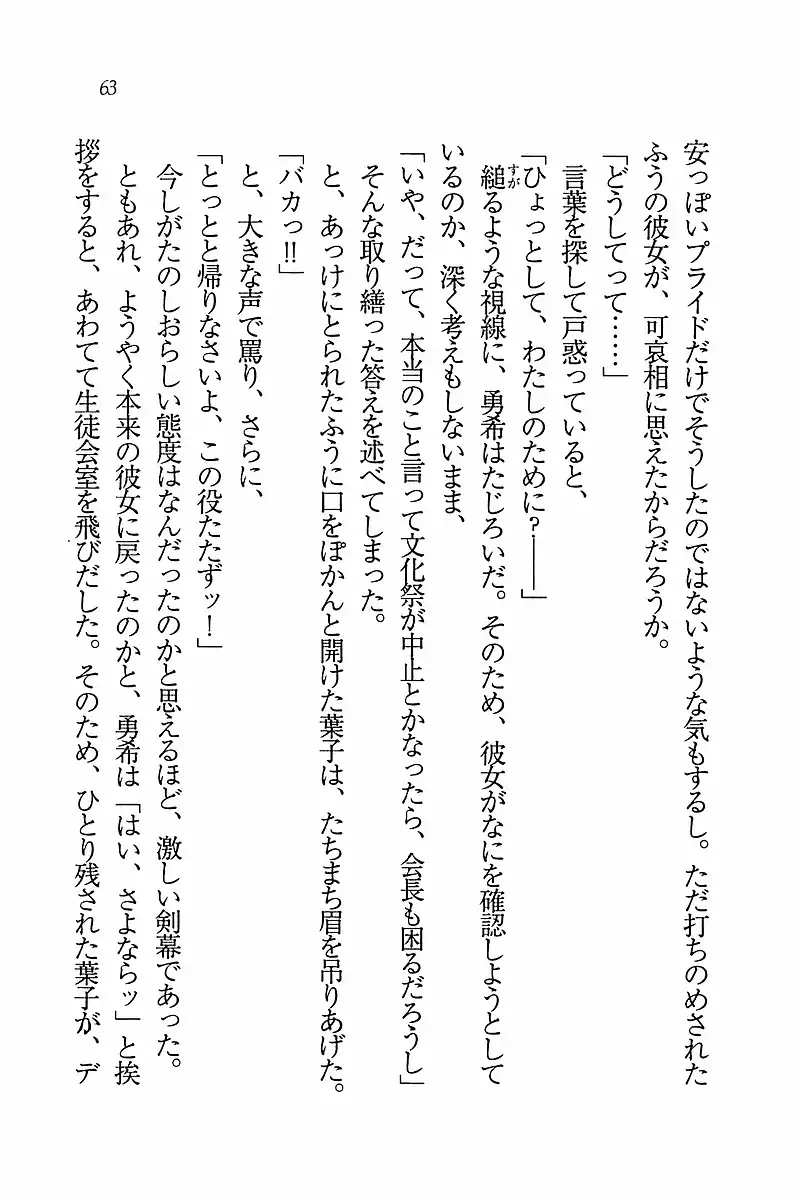 63
安っぽいプライドだけでそうしたのではないような気もするし。ただ打ちのめされた
ふうの彼女が、可哀相に思えたからだろうか。
「どうしてって……」
言葉を探して戸惑っていると、
「ひょっとして、わたしのために？――」
縋るような視線に、勇希はたじろいだ。そのため、彼女がなにを確認しようとして
いるのか、深く考えもしないまま、
「いや、だって、本当のこと言って文化祭が中止とかなったら、会長も困るだろうし」
そんな取り繕った答えを述べてしまった。
と、あっけにとられたふうに口をぽかんと開けた葉子は、たちまち眉を吊りあげた。
「バカっ!!」
と、大きな声で罵り、さらに、
「とっとと帰りなさいよ、この役たたずッ！」
今しがたのしおらしい態度はなんだったのかと思えるほど、激しい剣幕であった。
ともあれ、ようやく本来の彼女に戻ったのかと、勇希は「はい、さよならッ」と挨
拶をすると、あわてて生徒会室を飛びだした。そのため、ひとり残された葉子が、デ